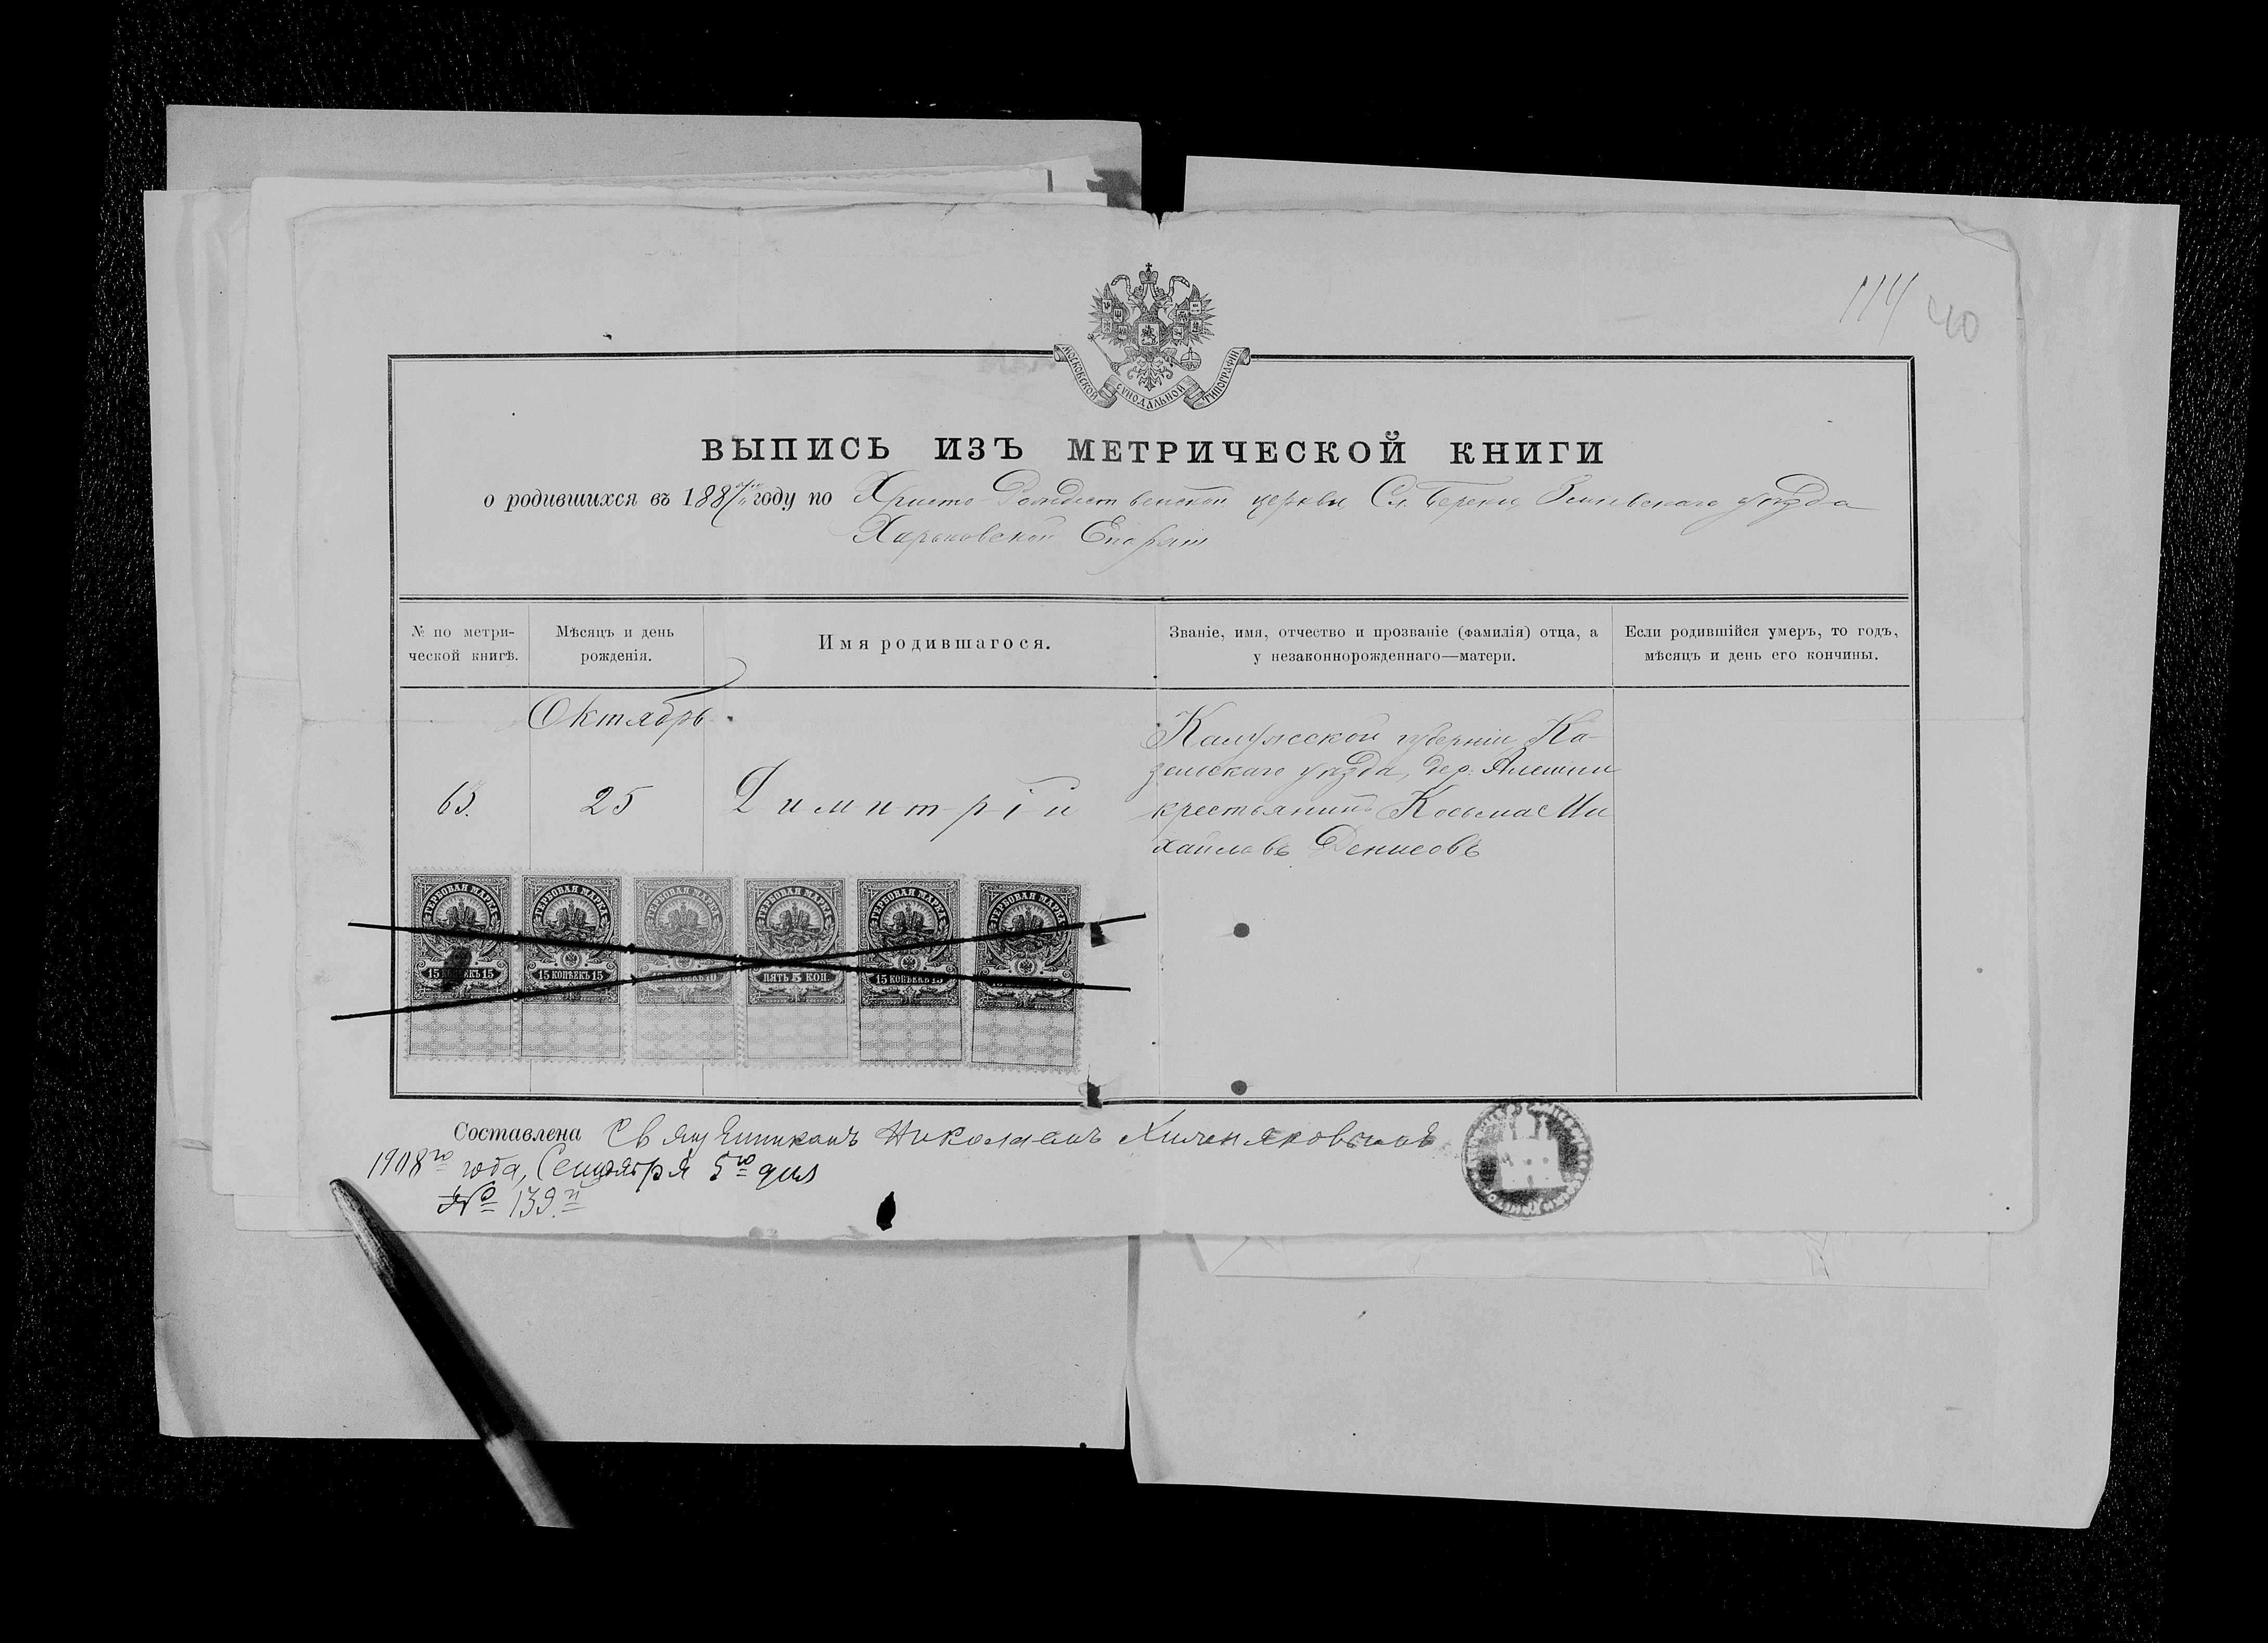 114 40
МОСКОВСКОЙ СѴНОДАЛЬНОЙ ТИПОГРАФІИ
ВЫПИСЬ ИЗЪ МЕТРИЧЕСКОЙ КНИГИ
о родившихся въ 1887 году по Христо-Рождественской церкви Сл. Береки Зміевскаго уѣзда
Харьковской Епархіи
№ по метри-
ческой книгѣ.
Мѣсяцъ и день
рожденія.
Имя родившагося.
Званіе, имя, отчество и прозваніе (фамилія) отца, а
у незаконнорожденнаго—матери.
Если родившійся умеръ, то годъ,
мѣсяцъ и день его кончины.
Октябрь
63.
25
Димитрій
Калужской губерніи, Ко-
зельскаго уѣзда, дер. Алешни
крестьянинъ Косьма Ми
хайловъ Денисовъ
ГЕРБОВАЯ МАРКА ГЕРБОВАЯ МАРКА ГЕРБОВАЯ МАРКА ГЕРБОВАЯ МАРКА ГЕРБОВАЯ МАРКА ГЕРБОВАЯ МАРКА
15 КОПѢЕКЪ 15 15 КОПѢЕКЪ 15 10 КОПѢЕКЪ 10 ПЯТЬ 5 КОП. 15 КОПѢЕКЪ 15
Составлена Священникомъ Николаемъ
1908го года, Сентября 5го дня
№ 139.й